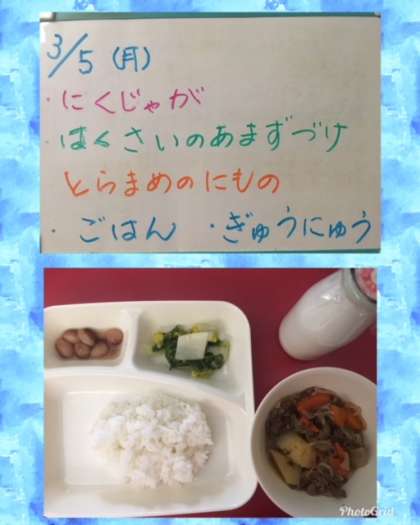 3/5 (月)
・にくじゃが
・はくさいのあまずづけ
とらまめのにもの
・ごはん ・ぎゅうにゅう
PhotoGrid